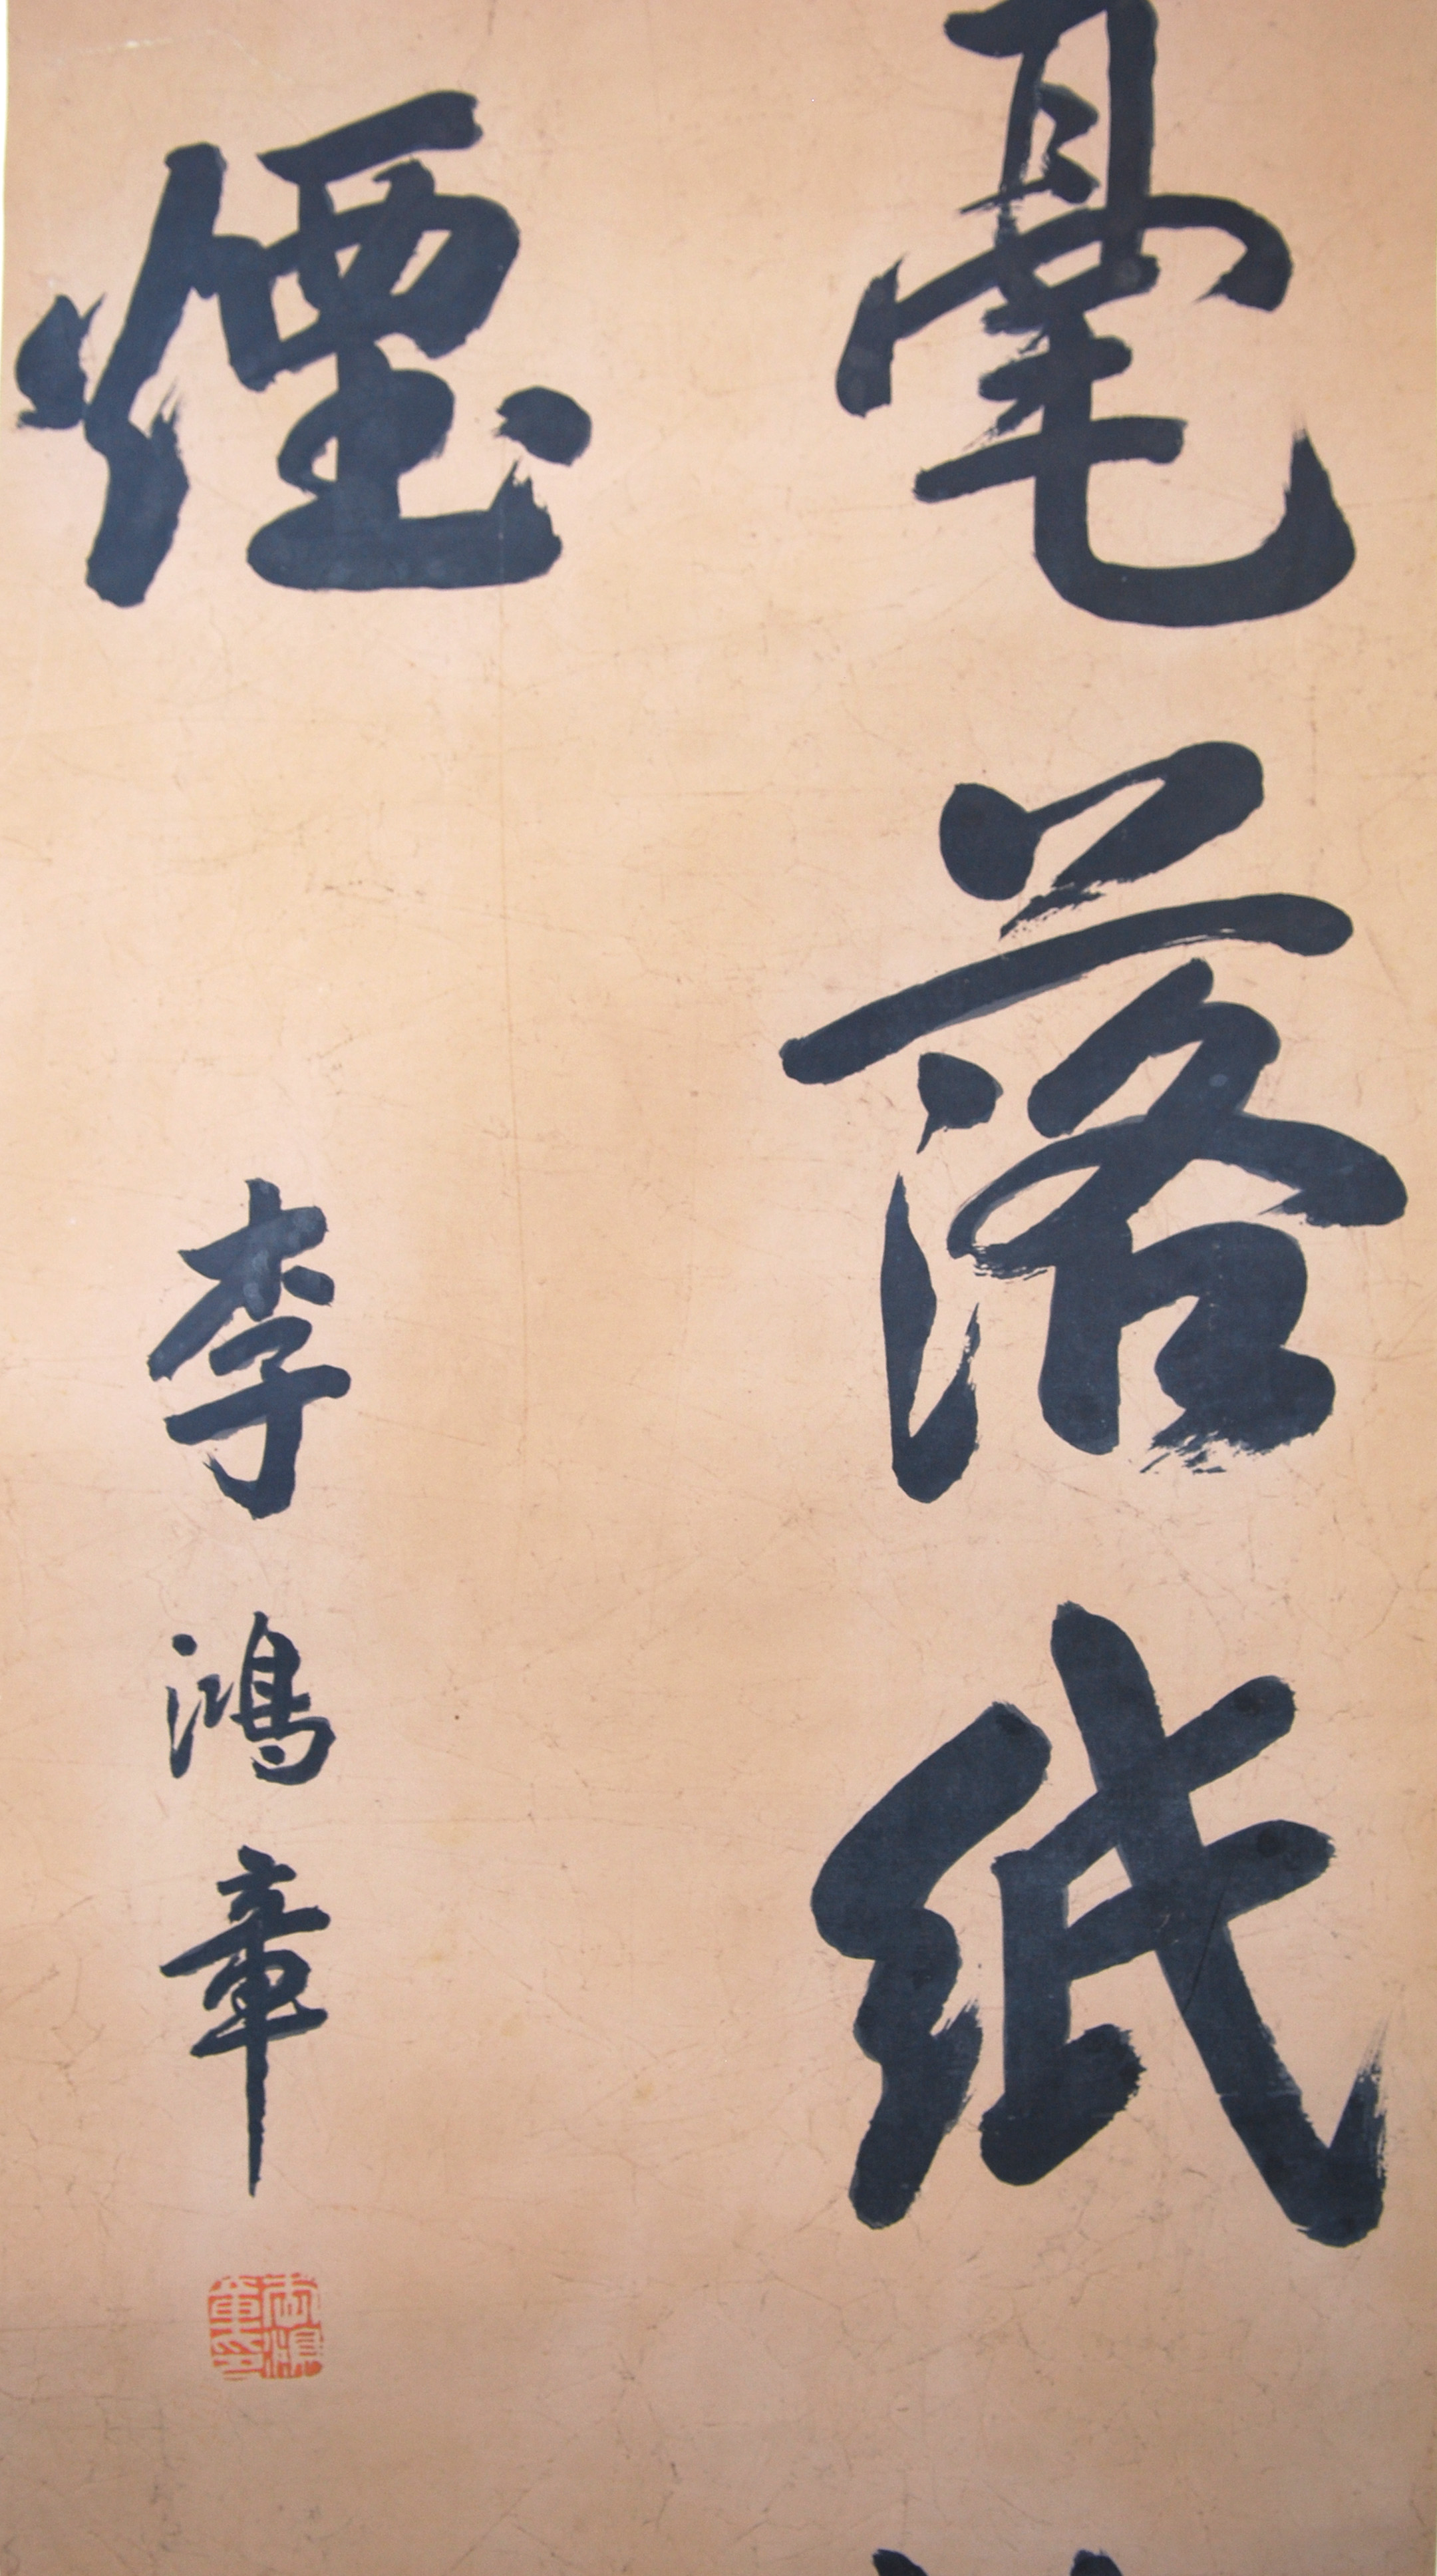 毫落紙
煙
李鴻章